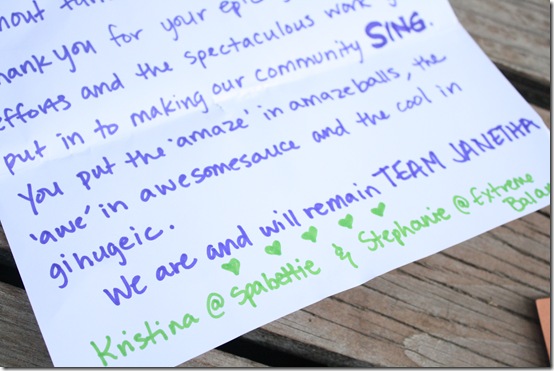 thank you for your epic
efforts and the spectaculous work
put in to making our community SING.
You put the 'amaze' in amazeballs, the
'awe' in awesomesauce and the cool in
gihugeic.
We are and will remain TEAM JANETHA
Kristina @ spabettie & Stephanie @ Extreme